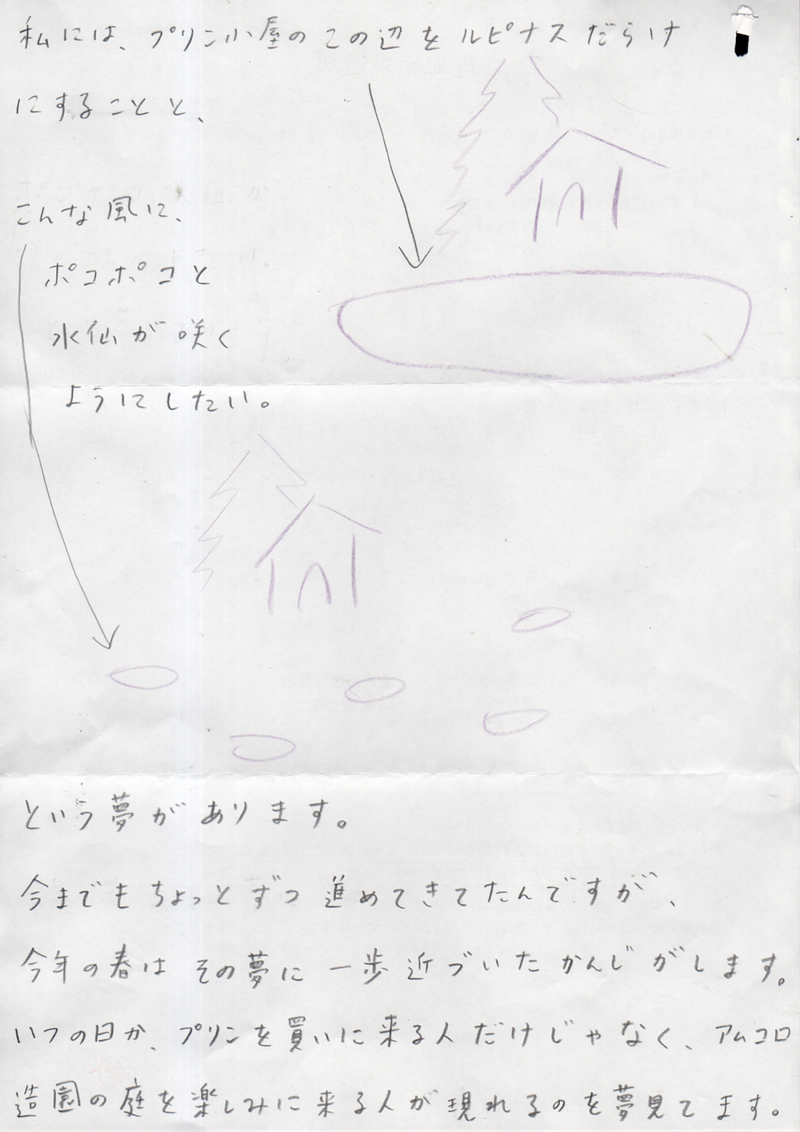 私には、プリン小屋のこの辺をルピナスだらけ
にすることと、
こんな風に、
ポコポコと
水仙が咲く
ようにしたい。
という夢があります。
今までもちょっとずつ進めてきてたんですが、
今年の春はその夢に一歩近づいたかんじがします。
いつの日か、プリンを買いに来る人だけじゃなく、アムコロ
造園の庭を楽しみに来る人が現れるのを夢見てます。